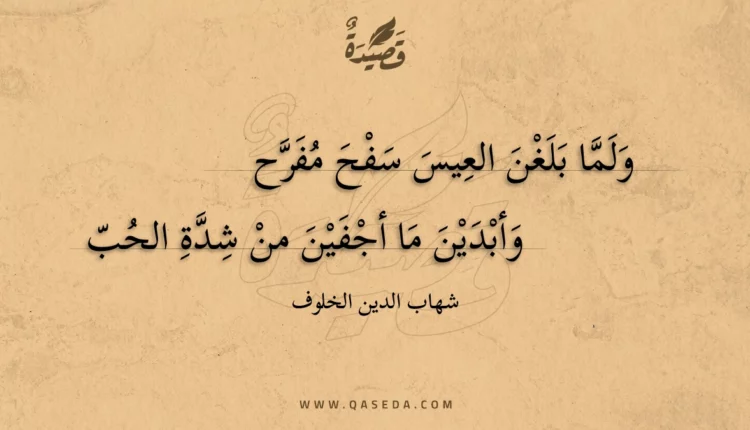 قَصِيْدَةٌ
وَلَمَّا بَلَغْنَ العِيسَ سَفْحَ مُفَرَّح
وَأبْدَيْنَ مَا أجْفَيْنَ منْ شِدَّةِ الحُبّ
شهاب الدين الخلوف
WWW.QASEDA.COM